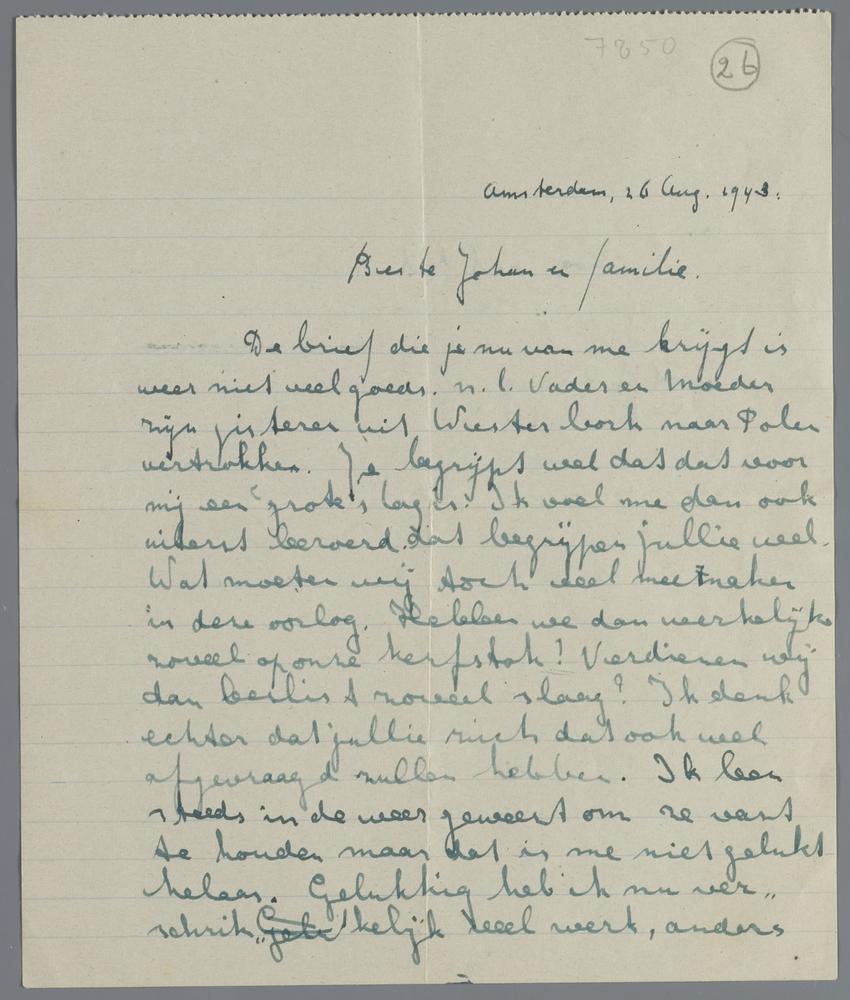 7850
26
Amsterdam, 26 Aug. 1943.
Beste Johan en familie.
De brief die je nu van me krijgt is
weer niet veel goeds. n.l. Vader en Moeder
zijn gisteren uit Westerbork naar Polen
vertrokken. Je begrijpt wel dat dat voor
mij een grote slag is. Ik voel me dan ook
uiterst beroerd. dat begrijpen jullie wel.
Wat moeten wij toch veel meemaken
in deze oorlog. Hebben we dan werkelijk
zoveel op onze kerfstok! Verdienen wij
dan beslist zoveel slaag? Ik denk
echter dat jullie zich dat ook wel
afgevraagd zullen hebben. Ik ben
steeds in de weer geweest om ze vast
te houden maar dat is me niet gelukt
helaas. Gelukkig heb ik nu ver„
schrik„kelijk veel werk, anders